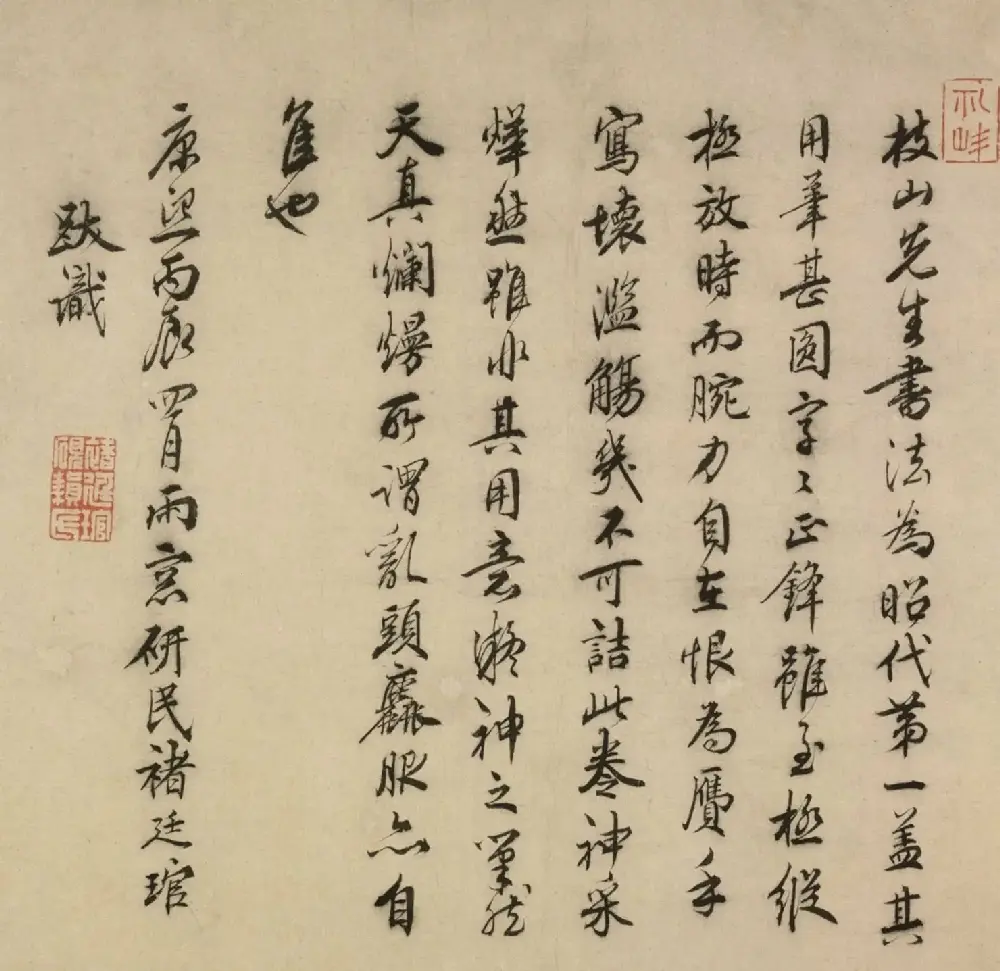 枝山先生書法為昭代第一蓋其
用筆甚圓字〻正鋒雖至極縱
極放時而腕力自在恨為贋手
寫壞濫觴幾不可詰此卷神采
燁然雖非其用意凝神之筆然
天真爛熳所謂亂頭麤服亦自
隹也
康熙丙辰四月雨窓研民褚廷琯
跋識